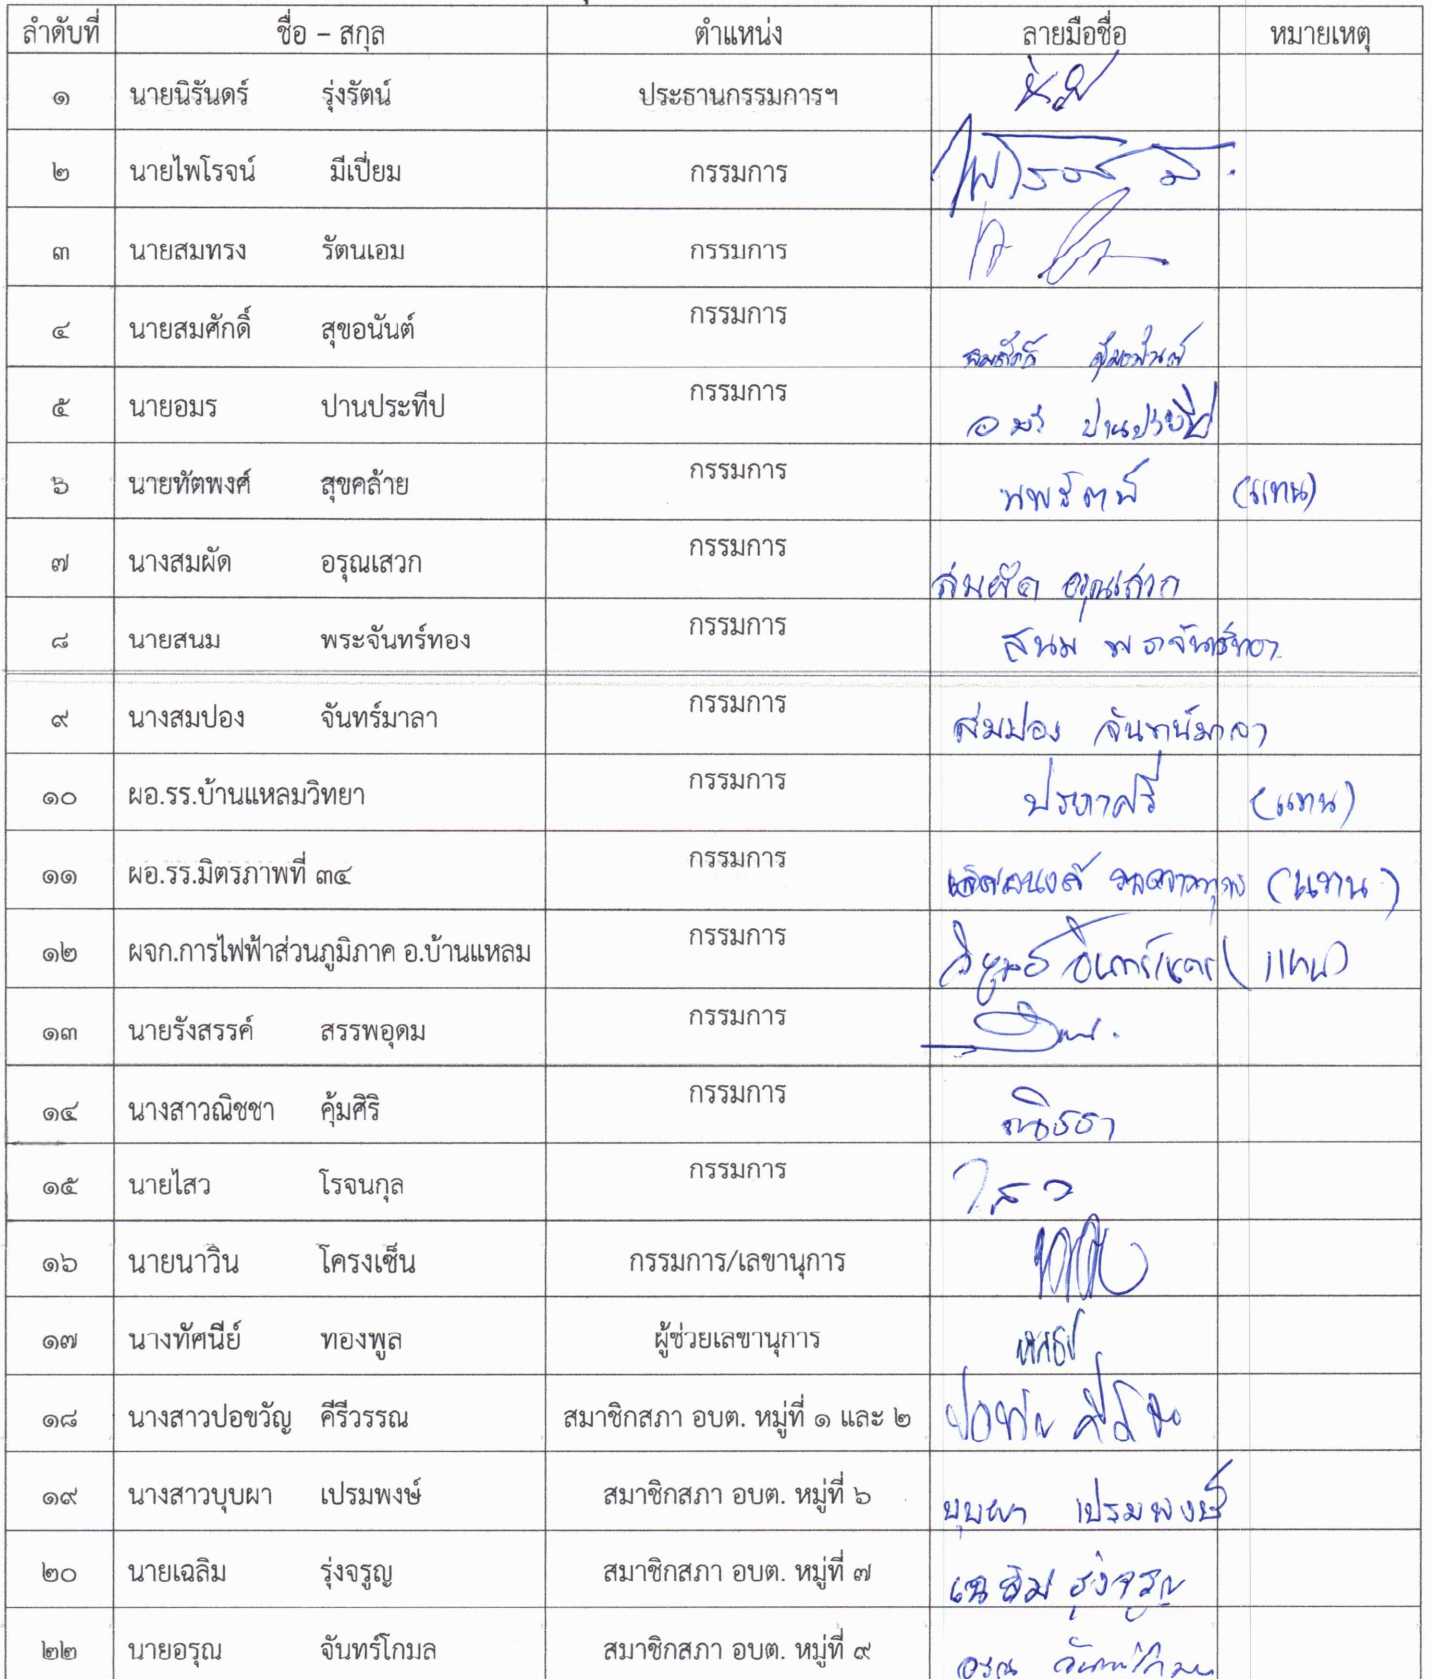 ลำดับที่ ชื่อ – สกุล ตำแหน่ง ลายมือชื่อ หมายเหตุ
๑ นายนิรันดร์ รุ่งรัตน์ ประธานกรรมการฯ
๒ นายไพโรจน์ มีเปี่ยม กรรมการ ไพโรจน์ มี
๓ นายสมทรง รัตนเอม กรรมการ
๔ นายสมศักดิ์ สุขอนันต์ กรรมการ สมศักดิ์ สุขอนันต์
๕ นายอมร ปานประทีป กรรมการ อมร ปานประทีป
๖ นายทัตพงศ์ สุขคล้าย กรรมการ (แทน)
๗ นางสมผัด อรุณเสวก กรรมการ สมผัด อรุณเสวก
๘ นายสนม พระจันทร์ทอง กรรมการ สนม พระจันทร์ทอง
๙ นางสมปอง จันทร์มาลา กรรมการ สมปอง จันทน์มาลา
๑๐ ผอ.รร.บ้านแหลมวิทยา กรรมการ (แทน)
๑๑ ผอ.รร.มิตรภาพที่ ๓๔ กรรมการ (แทน)
๑๒ ผจก.การไฟฟ้าส่วนภูมิภาค อ.บ้านแหลม กรรมการ (แทน)
๑๓ นายรังสรรค์ สรรพอุดม กรรมการ
๑๔ นางสาวณิชชา คุ้มศิริ กรรมการ ณิชชา
๑๕ นายไสว โรจนกุล กรรมการ ไสว
๑๖ นายนาวิน โครงเซ็น กรรมการ/เลขานุการ
๑๗ นางทัศนีย์ ทองพูล ผู้ช่วยเลขานุการ
๑๘ นางสาวปอขวัญ คีรีวรรณ สมาชิกสภา อบต. หมู่ที่ ๑ และ ๒
๑๙ นางสาวบุบผา เปรมพงษ์ สมาชิกสภา อบต. หมู่ที่ ๖ บุบผา เปรมพงษ์
๒๐ นายเฉลิม รุ่งจรูญ สมาชิกสภา อบต. หมู่ที่ ๗ เฉลิม รุ่งจรูญ
๒๒ นายอรุณ จันทร์โกมล สมาชิกสภา อบต. หมู่ที่ ๙ อรุณ จันทร์โกมล